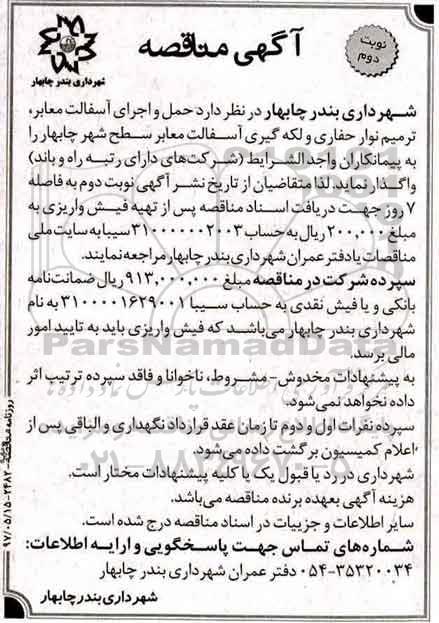 آگهی مناقصه
نوبت
دوم
شهرداری بندر چابهار
شهرداری بندر چابهار در نظر دارد حمل و اجرای آسفالت معابر،
ترمیم نوار حفاری و لکه گیری آسفالت معابر سطح شهر چابهار را
به پیمانکاران واجد الشرایط (شرکت‌های دارای رتبه راه و باند)
واگذار نماید. لذا متقاضیان از تاریخ نشر آگهی نوبت دوم به فاصله
۷ روز جهت دریافت اسناد مناقصه پس از تهیه فیش واریزی به
مبلغ ۲۰۰,۰۰۰ ریال به حساب ۳۱۰۰۰۰۰۰۰۲۰۰۳ سیبا به سایت ملی
مناقصات یا دفتر عمران شهرداری بندر چابهار مراجعه نمایند.
سپرده شرکت در مناقصه مبلغ ۹۱۳,۰۰۰,۰۰۰ ریال ضمانت‌نامه
بانکی و یا فیش نقدی به حساب سیبا ۳۱۰۰۰۰۱۶۲۹۰۰۱ به نام
شهرداری بندر چابهار می‌باشد که فیش واریزی باید به تایید امور
مالی برسد.
ParsNamadData
به پیشنهادات مخدوش- مشروط، ناخوانا و فاقد سپرده ترتیب اثر
داده نخواهد نمی‌شود.
سپرده نفرات اول و دوم تا زمان عقد قرارداد نگهداری و الباقی پس از
اعلام کمیسیون برگشت داده می‌شود.
۰۲۱-۸۸۳۴۹۶۷۰-۵
شهرداری در رد یا قبول یک یا کلیه پیشنهادات مختار است.
هزینه آگهی بعهده برنده مناقصه می‌باشد.
سایر اطلاعات و جزییات در اسناد مناقصه درج شده است.
شماره‌های تماس جهت پاسخگویی و ارایه اطلاعات:
۰۵۴-۳۵۳۲۰۰۳۴ دفتر عمران شهرداری بندر چابهار
شهرداری بندر چابهار
۹۷/۰۵/۱۵-۲۴۸۲